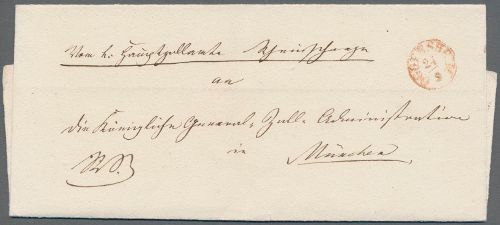 Vom k: Hauptzollamte Rheinschanze
an
Die Königliche General-Zoll-Administration
in
München
R.S.
24
8